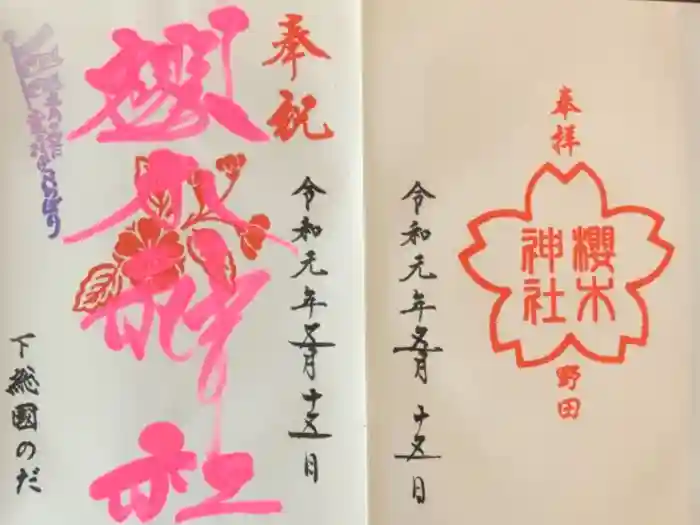 奉拝
櫻木
神社
野田
令和元年五月十五日
奉祝
令和元年五月十五日
櫻木神社
下総國のだ